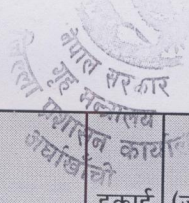 नेपाल सरकार
गृह मन्त्रालय
प्रशासन कार्या
अर्घाखाँची
इकाई